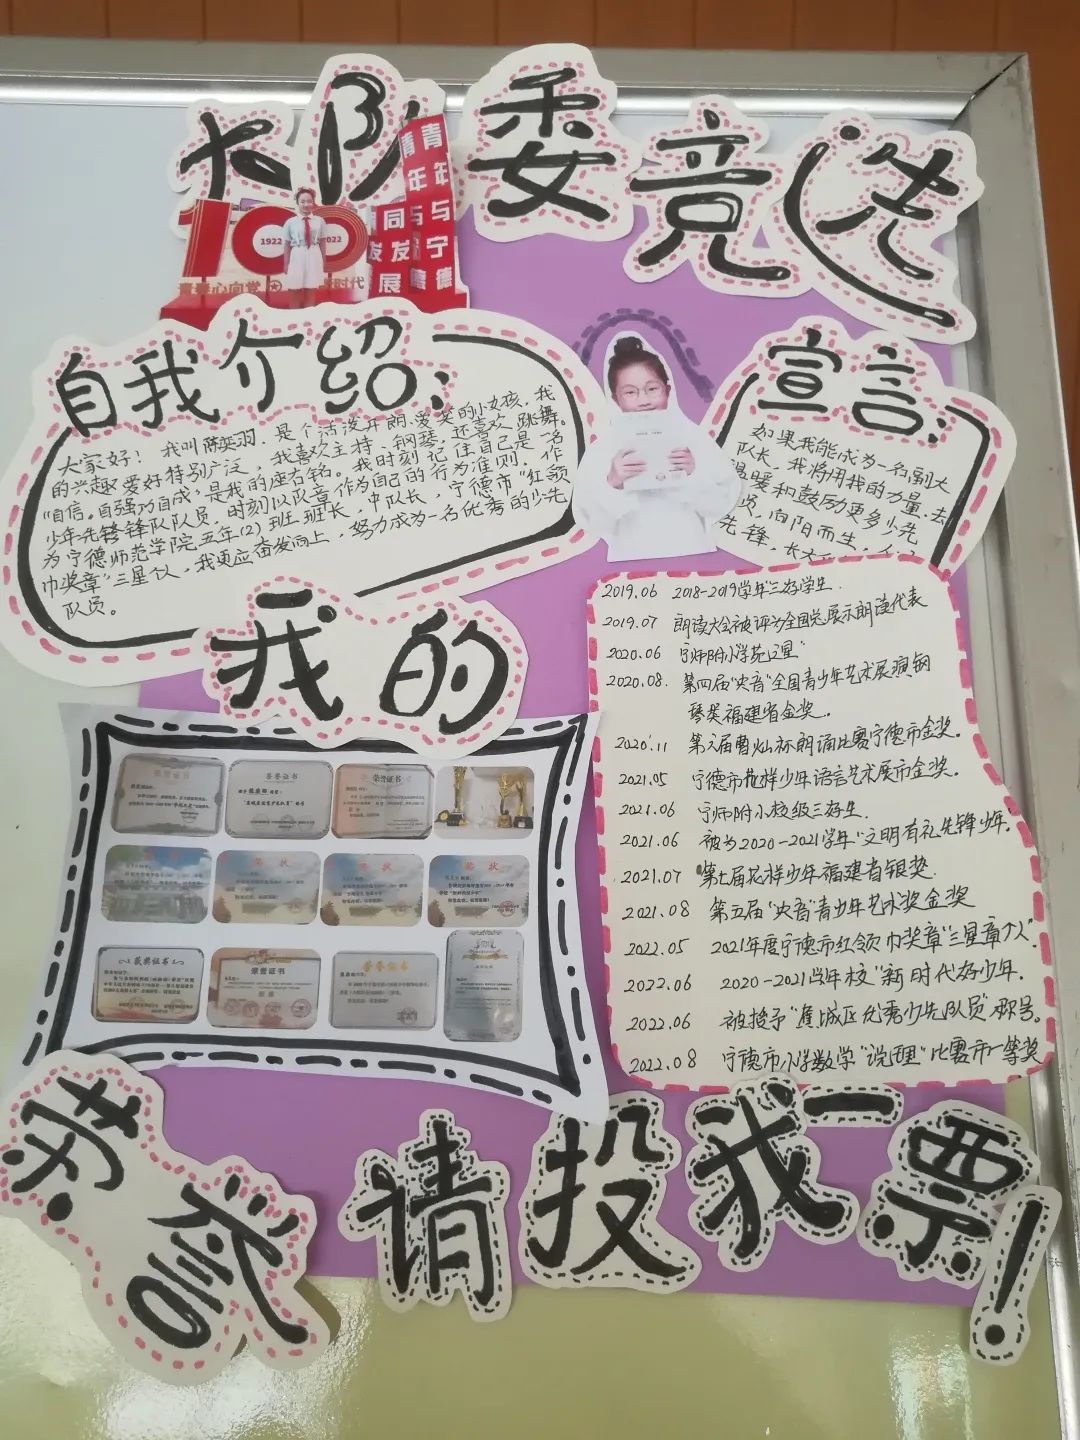 大队委竞选
青年与宁德
同发展
100
1922
2022
心向党
时代
自我介绍:
大家好！我叫陈奕羽，是个活泼开朗、爱笑的小女孩，我
的兴趣爱好特别广泛，我喜欢主持、钢琴，还喜欢跳舞。
“自信、自强方自成”是我的座右铭。我时刻记住自己是一名
少年先锋队队员，时刻以队章作为自己的行为准则，作
为宁德师范学院五年(2)班班长，中队长，宁德市“红领
巾奖章”三星个人，我更应奋发向上，努力成为一名优秀的少先
队员。
宣言:
如果我能成为一名副大
队长，我将用我的力量，去
温暖和鼓励更多少先
队员，向阳而生，
先锋，长大
我的
荣誉
荣誉证书
荣誉证书
奖状
奖状
奖状
获奖证书
荣誉证书
荣誉证书
2019.06 2018-2019学年“三好学生.
2019.07 朗读大会被评为全国总展示朗读代表
2020.06 宁师附小“学苑之星”
2020.08. 第四届“央音”全国青少年艺术展演钢
琴类福建省金奖。
2020.11 第六届曹灿杯朗诵比赛宁德市金奖.
2021.05 宁德市花样少年语言艺术展市金奖.
2021.06 宁师附小校级三好生.
2021.06 被为2020-2021学年“文明有礼先锋少年.
2021.07 第七届花样少年福建省银奖.
2021.08 第五届“央音”青少年艺术奖金奖
2022.05 2021年度宁德市红领巾奖章“三星章个人”.
2022.06 2020-2021学年校“新时代好少年.
2022.06 被授予“蕉城区优秀少先队员”称号。
2022.08 宁德市小学数学“说理”比赛市一等奖
请投我一票!